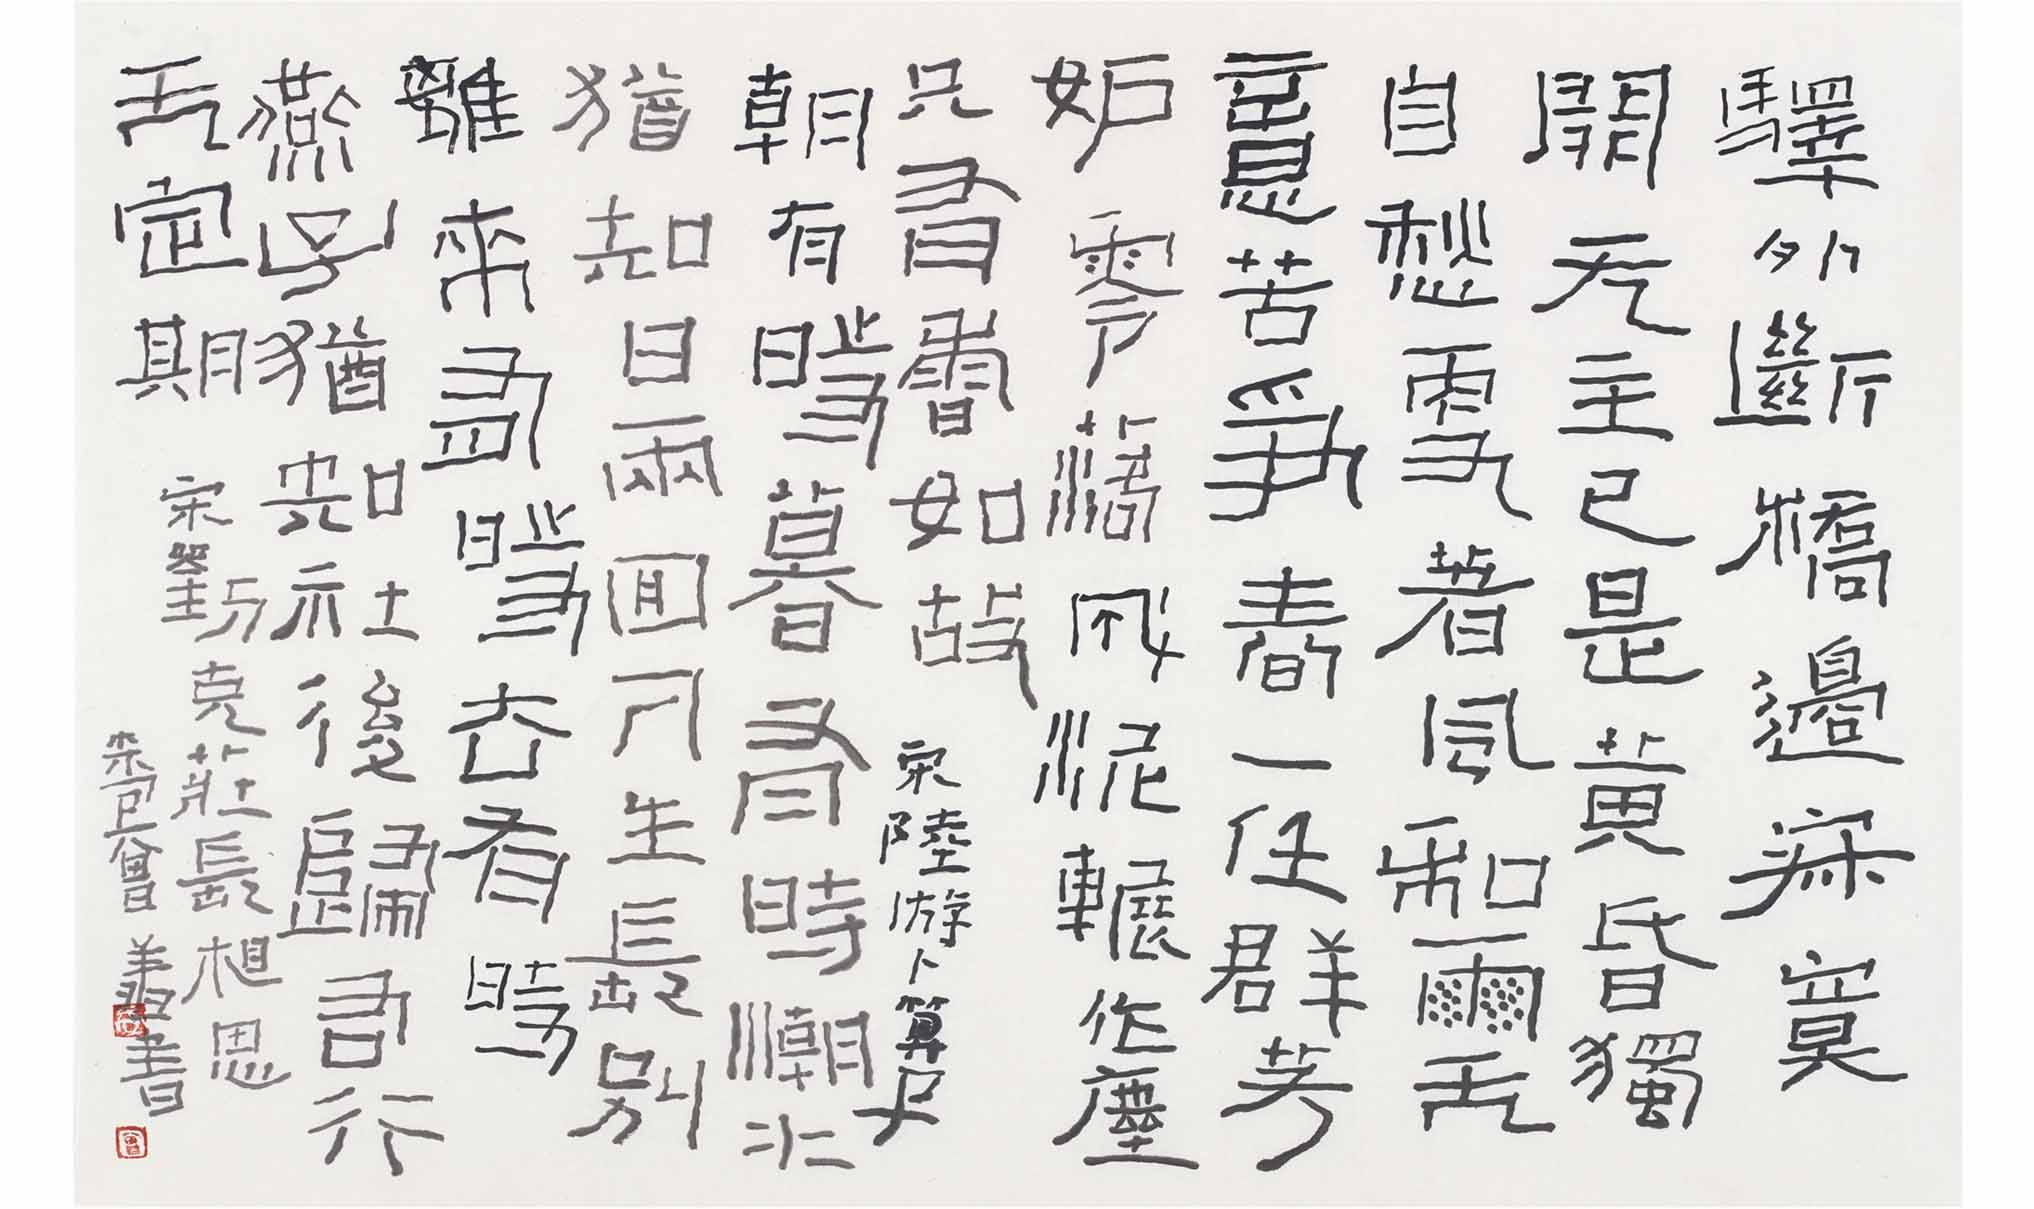 驛外斷橋邊寂寞
開无主已是黃昏獨
自愁更著風和雨无
意苦爭春一任群芳
妒零落成泥輾作塵
只有香如故
宋陸游卜算子
朝有時暮有時潮水
猶知日兩回人生長別
離來有時去有時
燕子猶知社後歸君行
无定期
宋劉克莊長相思
曾翔書